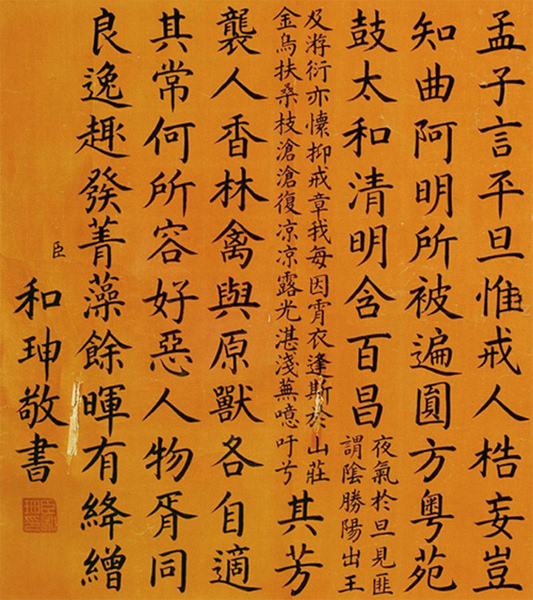 孟子言平旦惟戒人梏妄豈
知曲阿明所被遍圓方粵苑
鼓太和清明含百昌
夜氣於旦見匪
謂陰勝陽出王
及游衍亦懷抑戒章我每因宵衣逢斯於山莊
金烏扶桑枝滄滄復凉凉露光湛淺蕪噫吁兮
其芳
襲人香林禽與原獸各自適
其常何所容好惡人物胥同
良逸趣發菁藻餘暉有絳繒
臣和珅敬書